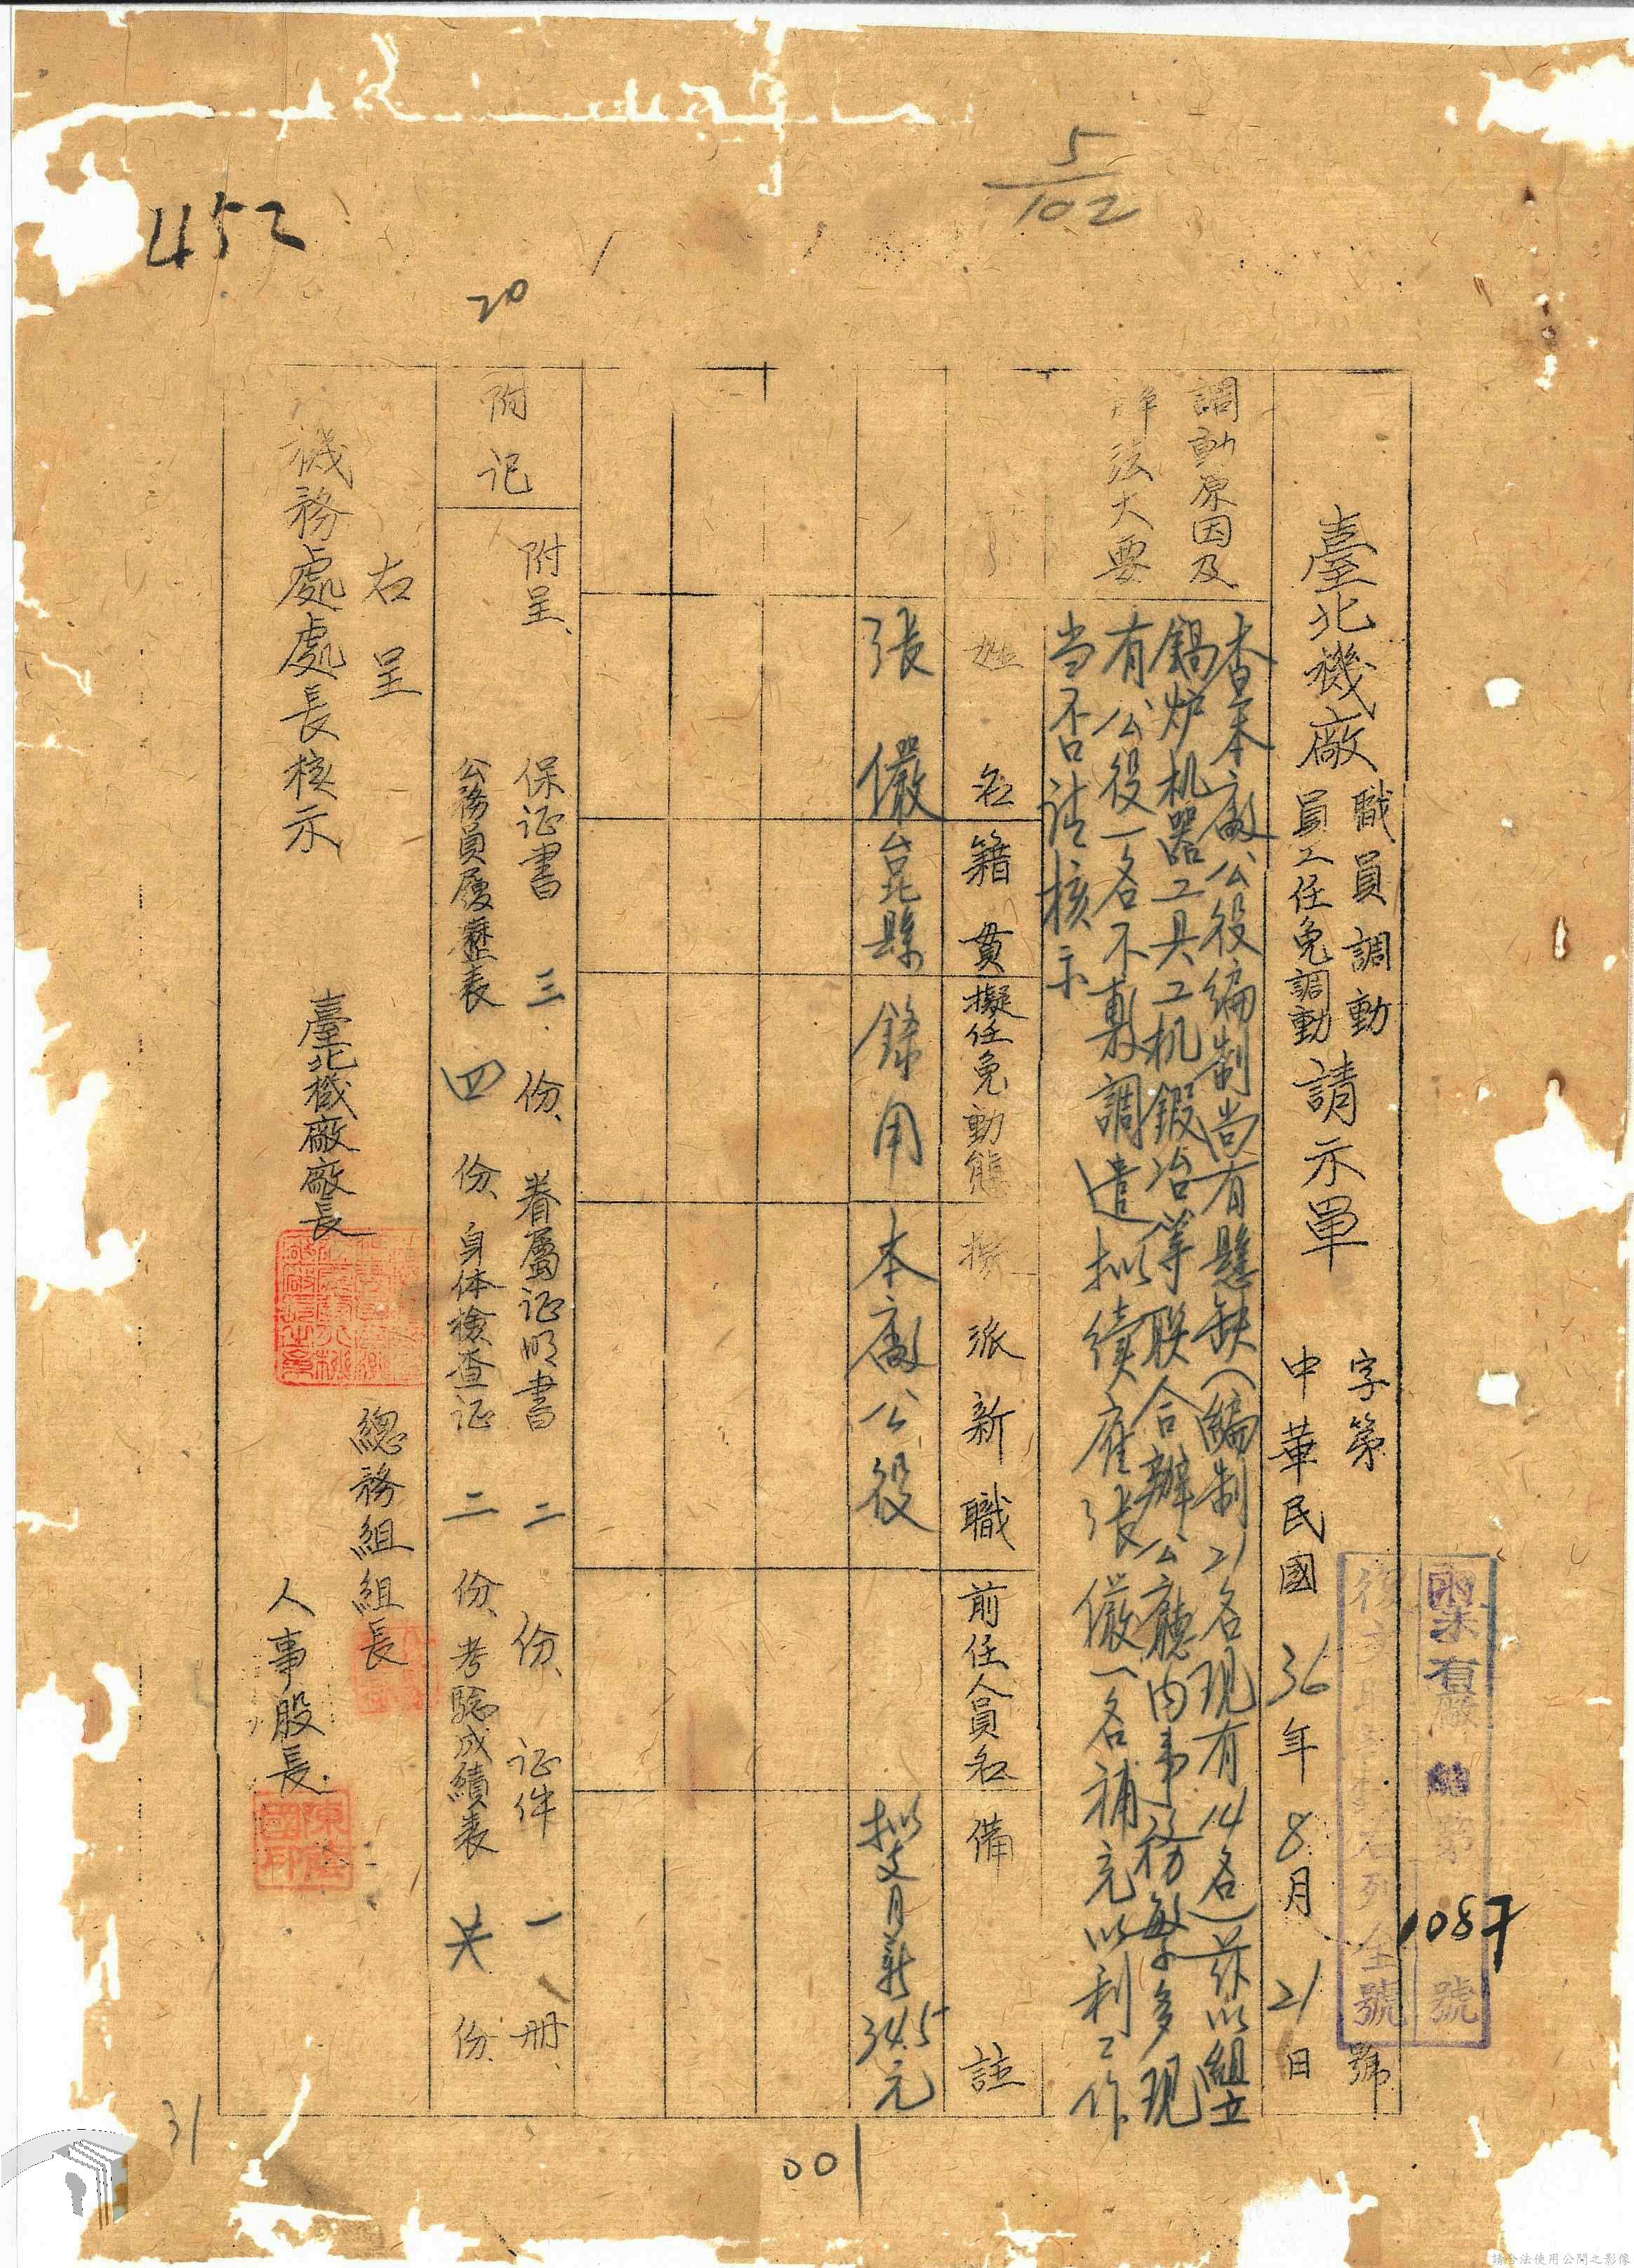 5/102
452
20
聚有廠總第1087號
復文時請敘右列全號
字第 號
臺北機廠 職員調動 員工任免調動 請示單
中華民國36年8月21日
調動原因及
辦法大要
查本廠公役編制尚有懸缺(編制21名現有14名)茲以組立
鍋炉机器工具工机鍛冶等联合辦公廳内事務繁多現
有公役一名不敷調遣拟續雇張儼一名補充以利工作
当否请核示
姓名
籍貫
擬任免動態
擬派新職
前任人員名
備註
張儼
台北縣
錄用
本廠公役
拟支月薪345元
附记
附呈、保证書三份、眷屬证明書二份、证件一册、
公務員履歷表四份、身体檢查证二份、考驗成績表共份
右呈
機務處處長核示
臺北機廠廠長
總務組組長
人事股長
陳
國印
31
001
請合法使用公開之影像